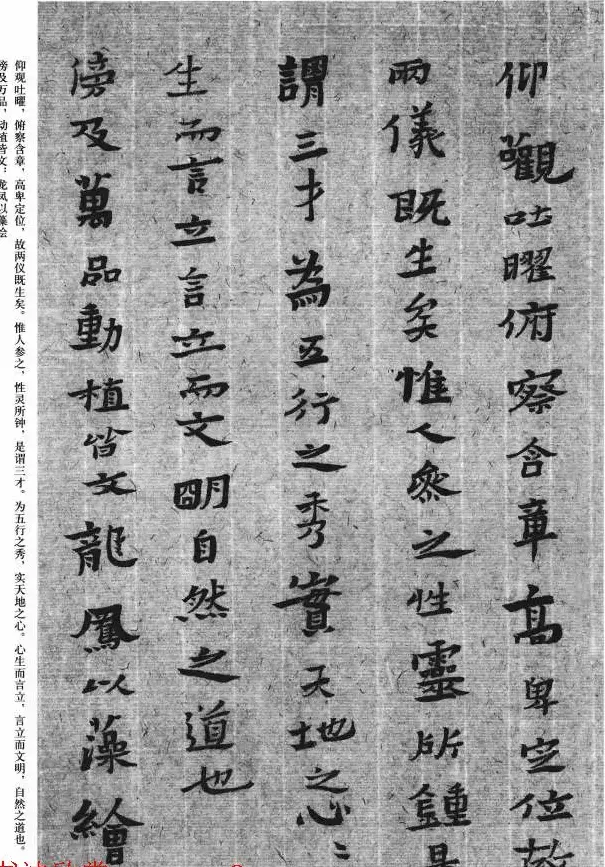 仰觀吐曜俯察含章高卑定位故
兩儀既生矣惟人參之性靈所鍾是
謂三才為五行之秀實天地之心〻
生而言立言立而文明自然之道也
傍及萬品動植皆文龍鳳以藻繪
仰观吐曜，俯察含章，高卑定位，故两仪既生矣。惟人参之，性灵所钟，是谓三才。为五行之秀，实天地之心。心生而言立，言立而文明，自然之道也。
傍及万品，动植皆文：龙凤以藻绘